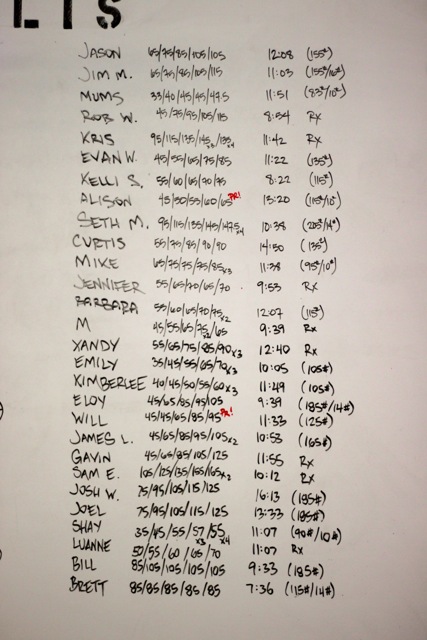 LTS
JASON 65/75/85/105/105 12:08 (155#)
JIM M. 65/75/85/105/115 11:03 (155#/16#)
MUMS 33/40/45/45/47.5 11:51 (83#/10#)
ROB W. 45/75/95/105/115 8:54 Rx
KRIS 95/115/135/145x3/135x4 11:42 Rx
EVAN W. 45/55/65/75/85 11:22 (135#)
KELLI S. 55/60/65/70/75 8:22 (115#)
ALISON 45/50/55/60/65 PR! 13:20 (115#/10#)
SETH M. 95/115/135/145/147.5x4 10:38
CURTIS 55/75/85/90/90 14:50 (135#)
MIKE 65/75/75/75/85x3 11:38 (95#/10#)
JENNIFER 55/65/70/65/70 9:53 Rx
BARBARA 55/60/65/70/75x2 12:07 (115#)
M 45/55/65/75x2/65 9:39 Rx
XANDY 55/65/75/85/90x3 12:40 Rx
EMILY 35/45/55/65/70x3 10:05 (105#)
KIMBERLEE 40/45/50/55/60x3 11:49 (105#)
ELOY 45/65/85/95/105 9:39 (185#/14#)
WILL 45/45/65/85/95 PR! 11:33 (125#)
JAMES L. 45/65/85/95/105x2 10:53 (165#)
GAVIN 45/65/85/105/125 11:55 Rx
SAM E. 105/125/135/155/165x2 10:12 Rx
JOSH W. 75/95/105/115/125 16:13 (185#)
JOEL 75/95/105/115/125 13:33 (185#)
SHAY 35/45/55/57x3/55x4 11:07 (90#/10#)
LUANNE 50/55/60/65/70 11:07 Rx
BILL 85/105/105/105/105 9:33 (185#)
BRETT 85/85/85/85/85 7:36 (115#/14#)